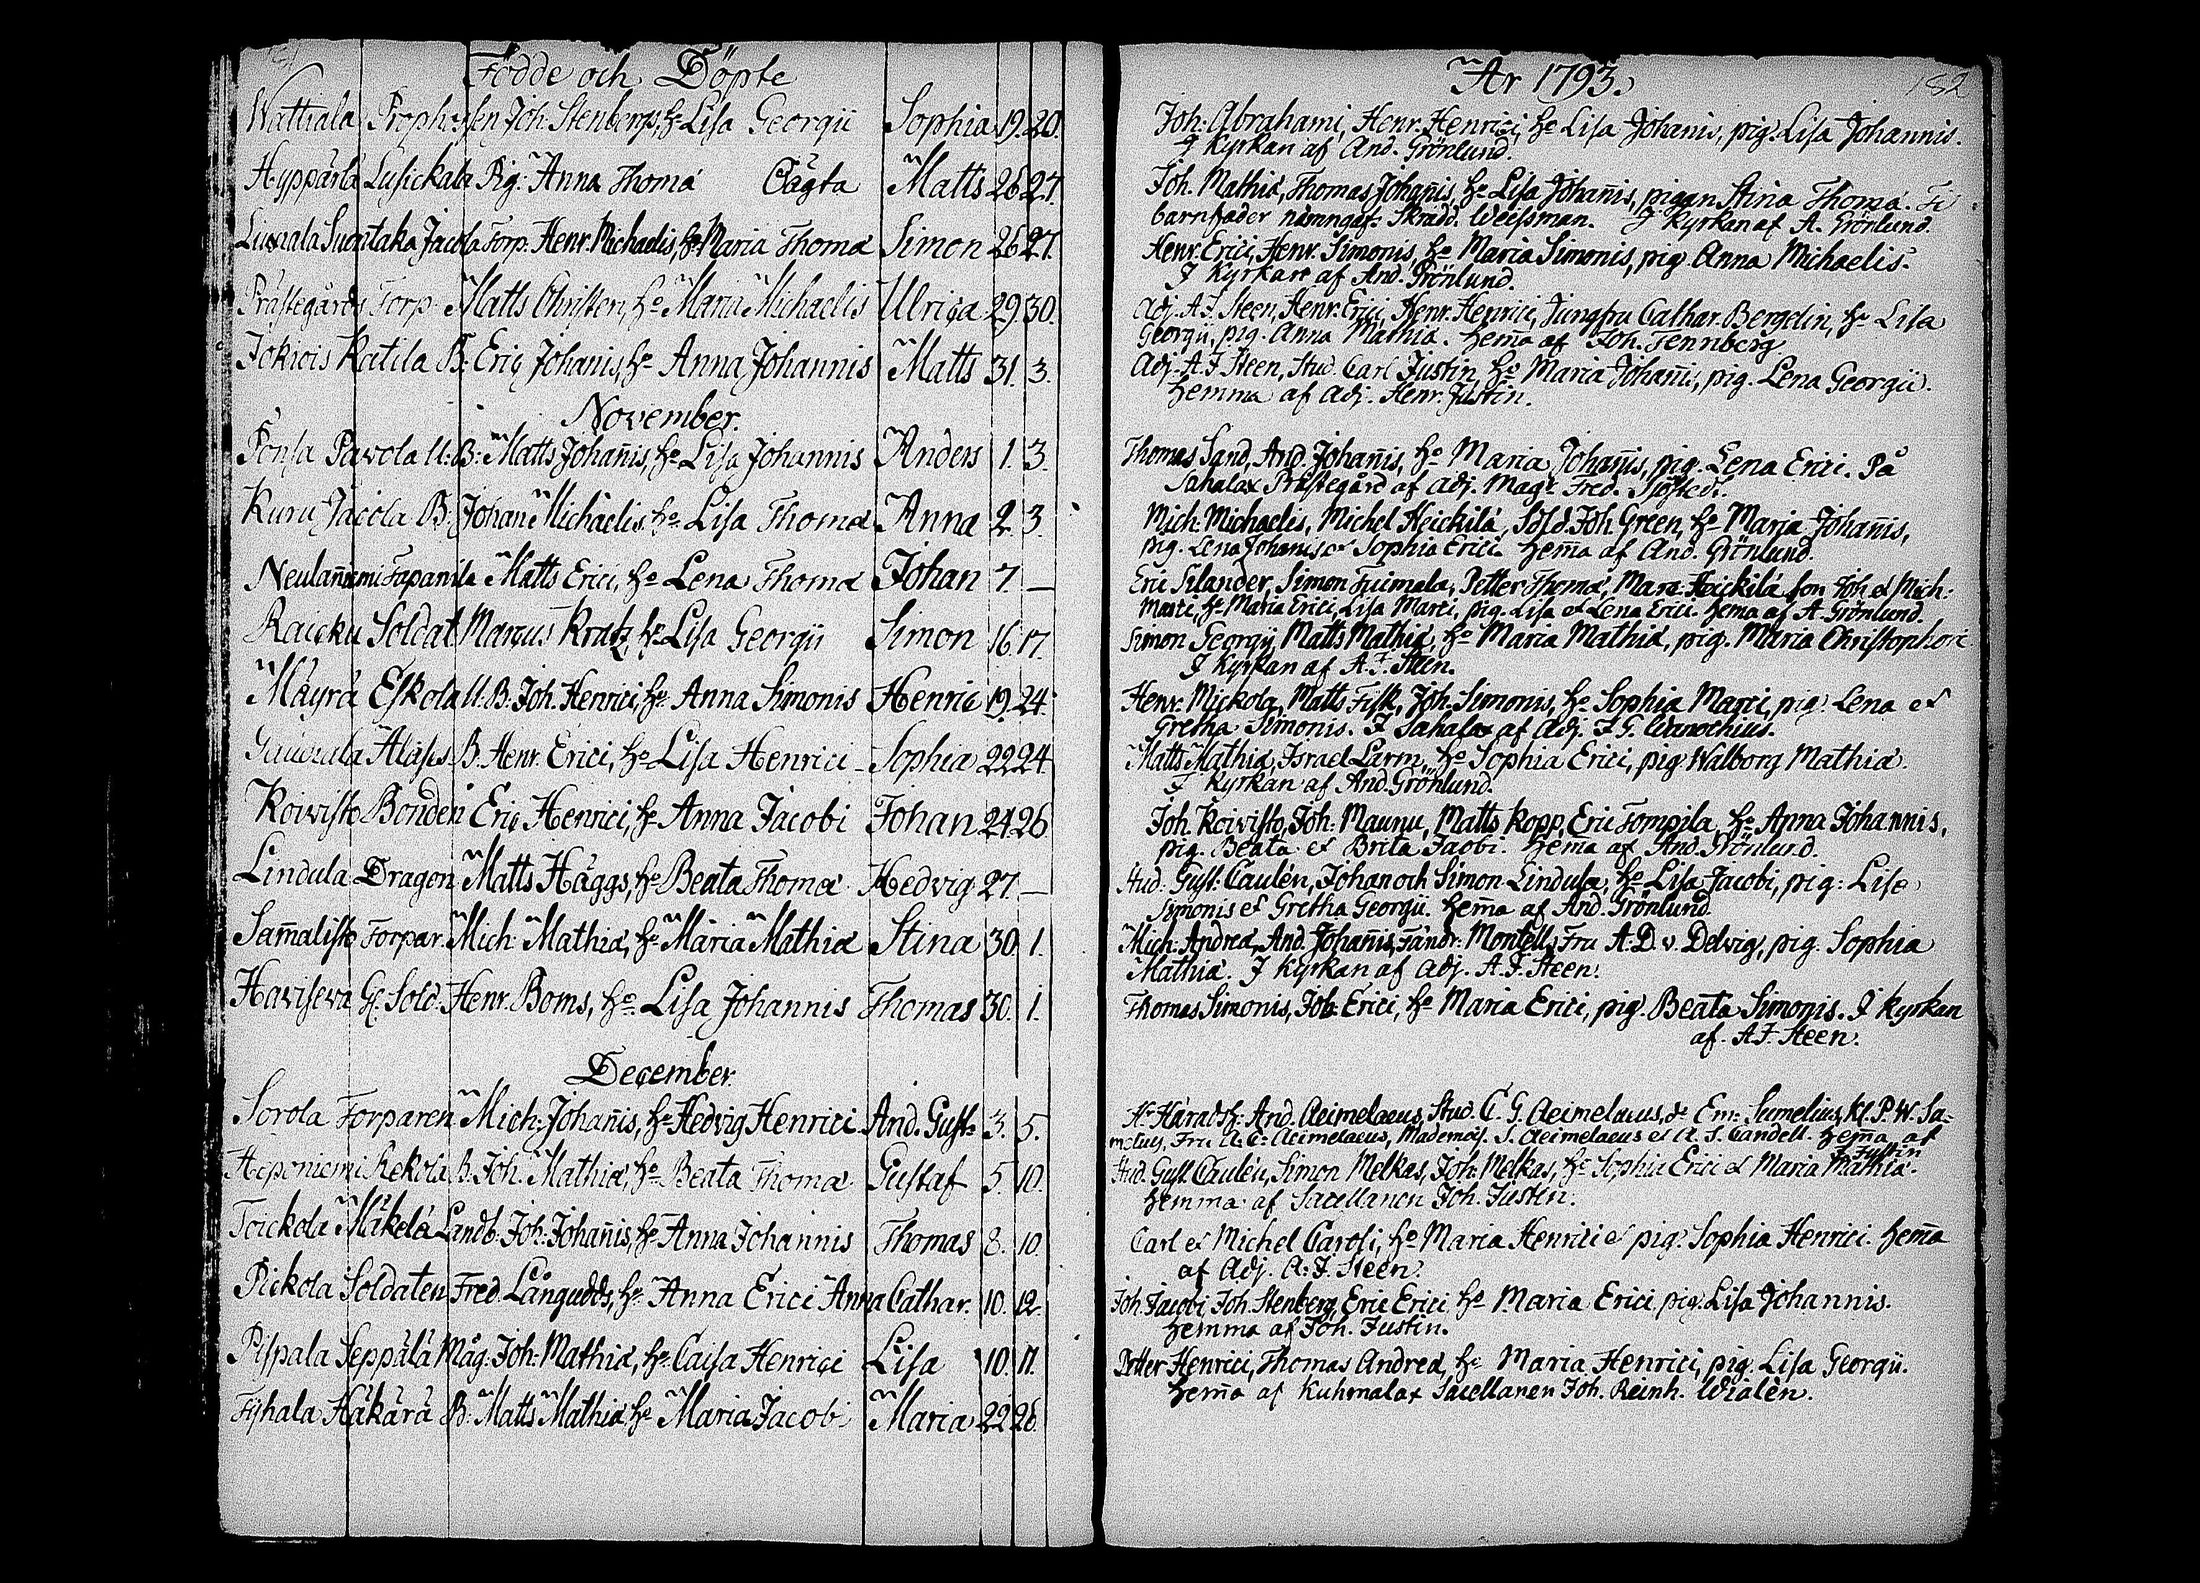 Födde och Döpte
Wattiala Propho. sen Joh. Stenbergs, h. Lisa Georgii Sophia 19. 20.
Hyppärlä Lusickala Pig. Anna Thomæ Oägta Matts 26 27.
Suontaka Jacola Torp. Henr. Michaelis, h. Maria Thomæ Simon 26 27.
Prästegårds Torp. Matts Christen, h. Maria Michaelis Ulrica 29 30.
Jokiois Katila B. Eric Johanis, h. Anna Johannis Matts 31. 3.
November.
Ponsa Pavola U. B. Matts Johañis, h. Lisa Johannis Anders 1. 3.
Kuru Jacola B. Johan Michaelis, h. Lisa Thomæ Anna 2. 3.
Neulañiemi Tapanila Matts Erici, h. Lena Thomæ Johan 7. —
Raicku Soldat Marcus Kratz, h. Lisa Georgii Simon 16 17.
Mäyrä Eskola U. B. Joh. Henrici, h. Anna Simonis Henric 19. 24.
B. Henr. Erici, h. Lisa Henrici Sophia 22 24
Koivisto Bonden Eric Henrici, h. Anna Jacobi Johan 24 26
Lindula Dragon Matts Häggs, h. Beata Thomæ Hedvig 27 —
Sam̃alisto Torpar. Mich. Mathiæ, h. Maria Mathiæ Stina 30 1.
Haviseva Gl. Sold. Henr. Boms, h. Lisa Johannis Thomas 30. 1.
December.
Sorola Torparen Mich. Johañis, h. Hedvig Henrici And. Gust. 3. 5.
Haponiemi Kekola B. Joh. Mathiæ, h. Beata Thomæ Gustaf 5. 10.
Toickola Mäkelä Landb. Joh. Johañis, h. Anna Johannis Thomas 8. 10
Pickola Soldaten Fred. Långudds, h. Anna Erici Anna Cathar. 10. 12.
Pispala Seppälä Måg. Joh. Mathiæ, h. Caisa Henrici Lisa 10. 11.
Tyhala Häkärä B. Matts Mathiæ, h. Maria Jacobi Maria 22 26.
År 1793.
182
Joh. Abrahami, Henr. Henrici, h. Lisa Johanis, pig. Lisa Johannis.
J Kyrkan af And. Grönlund.
Joh. Mathiæ, Thomas Johañis, h. Lisa Johañis, pigan Stina Thomæ. Til
barnfader nämngaf: Skradd. Weissman. J Kyrkan af A. Grönlund.
Henr. Erici, Henr. Simonis, h. Maria Simonis, pig. Anna Michaelis.
J Kyrkan af And. Grönlund.
Adj. A. F. Steen, Henr. Erici, Henr. Henrici, Jungfru Cathar. Bergelin, h. Lisa
Georgii, pig. Anna Mathiæ. Hem̃a af Joh. Tennberg
Adj. A F Steen, Stud. Carl Justin, h. Maria Johañis, pig. Lena Georgii.
Hemma af Adj. Henr. Justin.
Thomas Sand, And. Johañis, h. Maria Johañis, pig. Lena Erici. På
Sahalax Prästegård af Adj. Mag. Fred. Sjöstedt.
Mich. Michaelis, Michel Heickilä, Sold. Joh. Green, h. Maria Johañis,
pig. Lena Johanis et Sophia Erici. Hem̃a af And. Grönlund.
Eric Silander, Simon Tuimala, Petter Thomæ, Marc. Heickilä son Joh. et Mich.
Marci, h. Maria Erici, Lisa Marci, pig. Lisa et Lena Erici. Hem̃a af A. Grönlund.
Simon Georgii, Matts Mathiæ, h. Maria Mathiæ, pig. Maria Christophori
J Kyrkan af A. F. Steen.
Henr. Mickola, Matts Fisk, Joh. Simonis, h. Sophia Marci, pig. Lena et
Gretha Simonis. J Sahalax af Adj. F. G. Wanochius.
Matts Mathiæ, Israel Larm, h. Sophia Erici, pig. Walborg Mathiæ.
J Kyrkan af And. Grönlund.
Joh. Koivisto, Joh. Maunu, Matts Kopp, Eric Tompila, h. Anna Johannis,
pig. Beata et Brita Jacobi. Hem̃a af And. Grönlund.
Stud. Gust. Caulén, Johan och Simon Lindula, h. Lisa Jacobi, pig. Lisa
Simonis et Gretha Georgii. Hem̃a af And. Grönlund.
Mich. Andreæ, And. Johañis, Fändr. Montell, Fru A. D. v. Delvig, pig. Sophia
Mathiæ. J Kyrkan af Adj. A. F. Steen.
Thomas Simonis, Joh. Erici, h. Maria Erici, pig. Beata Simonis. J Kyrkan
af. A F. Steen.
Hr Häradsh. And. Aeimelaeus, Stud. C. G. Aeimelaeus, Em. Sumelius, P. W. Sa-
molius, Fru A. C. Aeimelaeus, Mademois. S. Aeimelaeus et A. S. Candell. Hem̃a af
J. Justin
Stud. Gust. Caulén, Simon Melkas, Joh. Melkas, h. Sophia Erici et Maria Mathiæ.
Hemma af Sacellanen Joh. Justin.
Carl et Michel Caroli, h. Maria Henrici et pig. Sophia Henrici. Hem̃a
af Adj. A. F. Steen.
Joh. Jacobi, Joh. Stenberg, Eric Erici, h. Maria Erici, pig. Lisa Johannis.
Hemma af Joh. Justin.
Petter Henrici, Thomas Andreæ, h. Maria Henrici, pig. Lisa Georgii.
Hem̃a af Kuhmalax Sacellanen Joh. Reinh. Wialén.